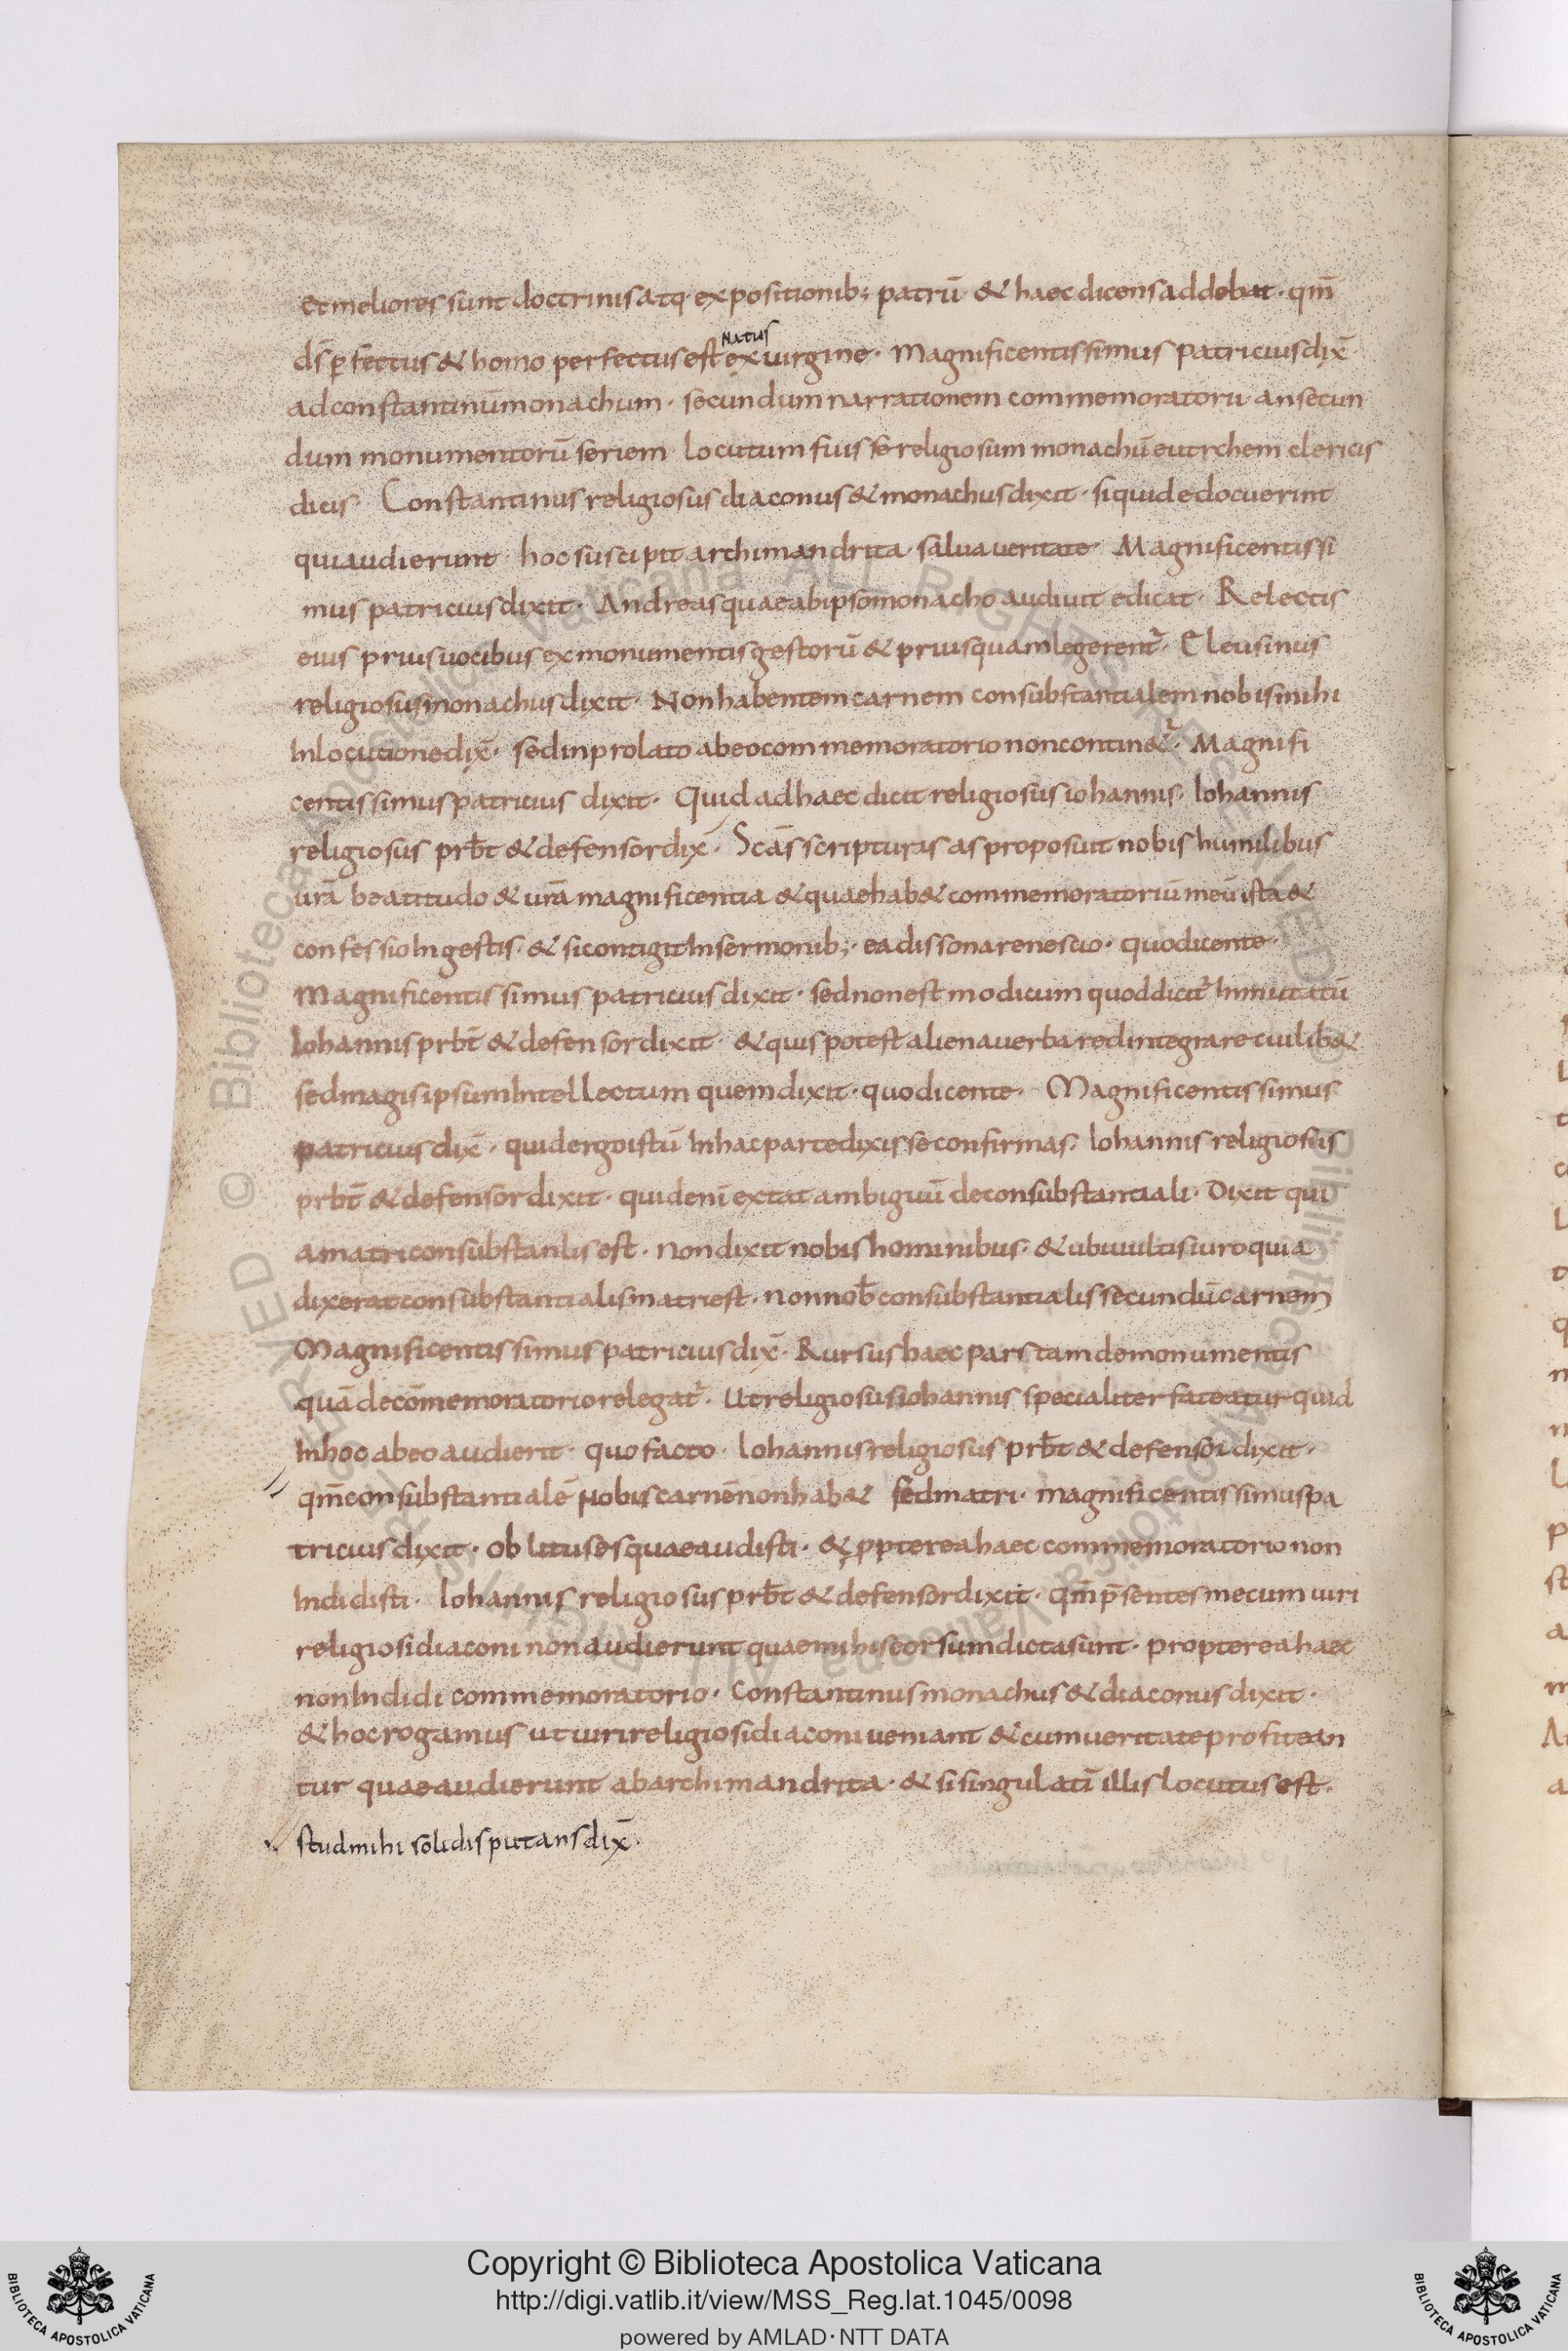 et meliores sunt doctrinis atq· expositionib; patrū & haec dicens addebat · qm̄
ds̄ ꝑfectus & homo perfectus est natus ex uirgine · Magnificentissimus patricius dix̄·
ad constantinū monachum · secundum narrationem commemoratorii an secun
dum monumentorū seriem locutum fuisse religiosum monachū eutychem clericis
dicis · Constantinus religiosus diaconus & monachus dixit · siquid edocuerint
qui audierunt hoc suscipit archimandrita salua ueritate · Magnificentissi
mus patricius dixit · Andreas quae ab ipso monacho audiuit edicat · Relectis
eius prius uocibus ex monumentis gestorū & priusquam legerent᷑ · Eleusinus
religiosus monachus dixit · Non habentem carnem consubstantialem nobis mihi
In locutione dix̄ · sed in prolato ab eo commemoratorio non contin&᷑ · Magnifi
centissimus patricius dixit · Quid ad haec dicit religiosus iohannis · Iohannis
religiosus prb̄t & defensor dix̄ · Scās scripturis as proposuit nobis humilibus
urā beatitudo & urā magnificentia & quae hab& commemoratoriū meū ista &
confessio In gestis · & si contigit In sermonib; · ea dissonare nescio · quo dicente ·
Magnificentissimus patricius dixit · sed non est modicum quod dicit᷑ Inmutatū
Iohannis prb̄t & defensor dixit · & quis potest aliena uerba redintegrare cuilib&
sed magis ipsum Intellectum quem dixit · quo dicente · Magnificentissimus
patricius dix̄ · quid ergo istū In hac parte dixisse confirmas · Iohannis religiosus
prb̄t & defensor dixit · quid enī extat ambiguū de consubstantiali · Dixit qui
a matri consubstanlis est · non dixit nobis hominibus · & ubi uultis iuro quia
dixerat consubstantialis matri est · non nob̄ consubstantialis secundū carnem
Magnificentissimus patricius dix̄ · Rursus haec pars tam de monumentis
quā de cōmemoratorio relegat᷑ · Ut religiosus iohannis specialiter fateatur quid
In hoc ab eo audierit · quo facto · Iohannis religiosus prb̄t & defensor dixit ·
qm̄ consubstantialē nobis carnē non hab& sed matri · magnificentissimus pa
tricius dixit · oblitus es quae audisti · & ꝓpterea haec commemoratorio non
Indidisti · Iohannis religiosus prb̄t & defensor dixit · qm̄ p̄sentes mecum uiri
religiosi diaconi non audierunt quae mihi seorsum dicta sunt · propterea haec
non Indidi commemoratorio · Constantinus monachus & diaconus dixit ·
& hoc rogamus ut uiri religiosi diaconi ueniant & cum ueritate profitean
tur quae audierunt ab archimandrita · & si singulatī illis locutus est ·
istud mihi soli disputans dix̄ ·
© Biblioteca Apostolica Vaticana ALL RIGHTS RESERVED
Copyright © Biblioteca Apostolica Vaticana
http://digi.vatlib.it/view/MSS_Reg.lat.1045/0098
powered by AMLAD·NTT DATA
BIBLIOTECA APOSTOLICA VATICANA
BIBLIOTECA APOSTOLICA VATICANA